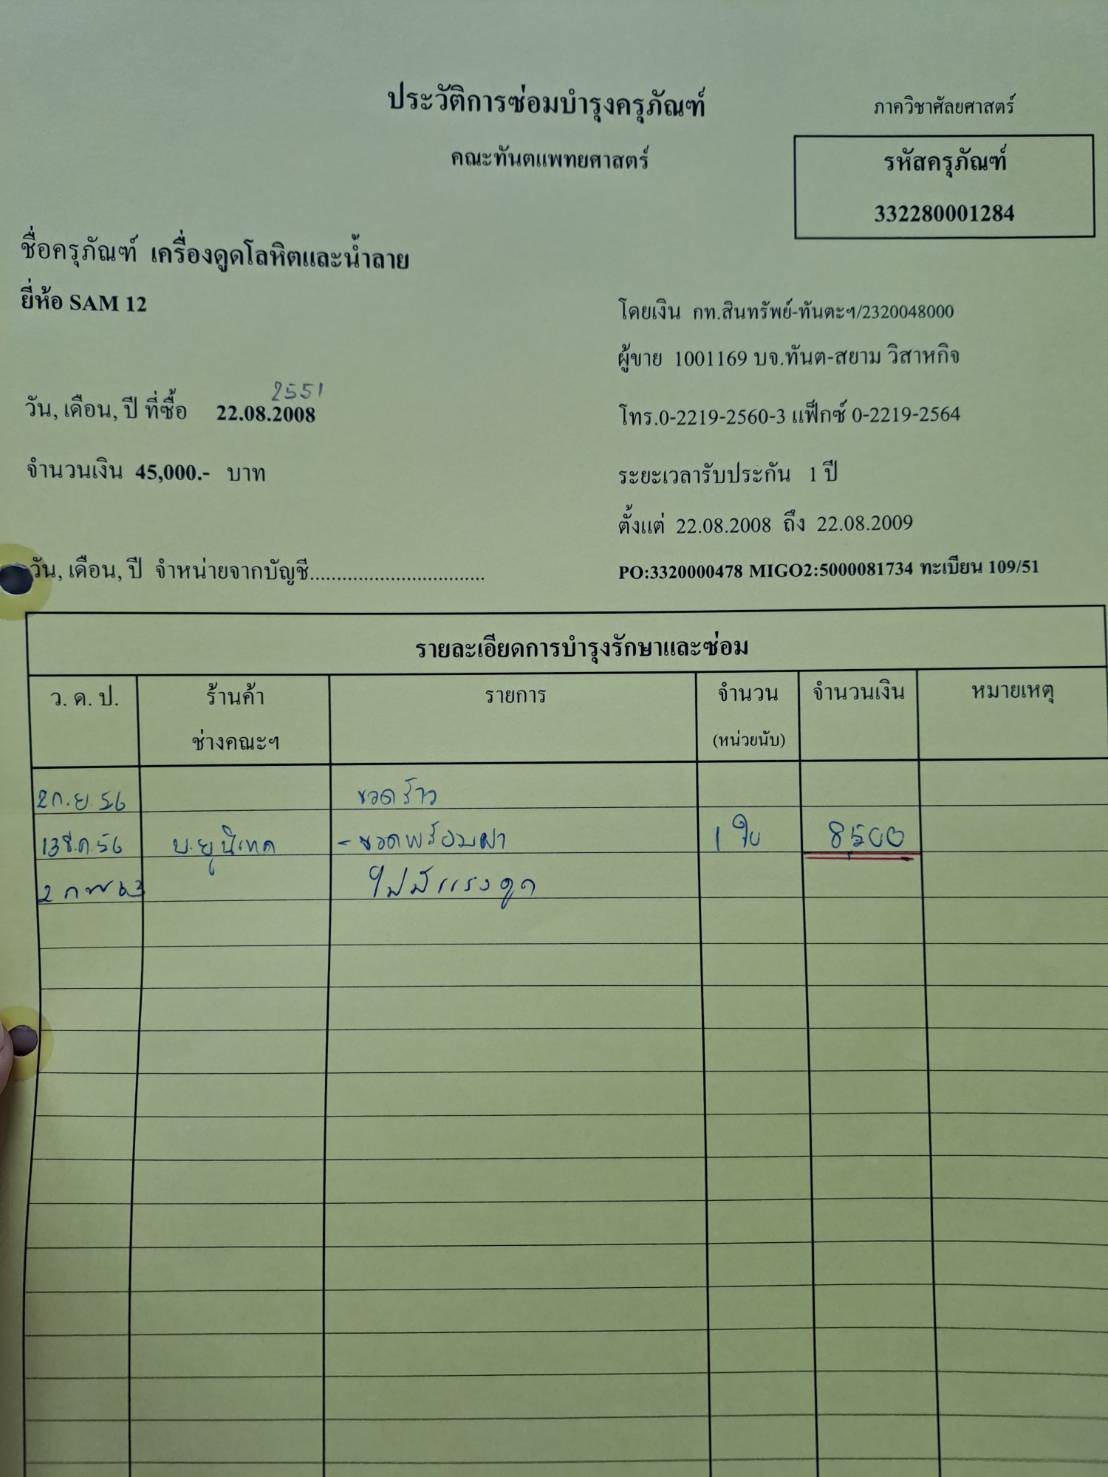 ประวัติการซ่อมบำรุงครุภัณฑ์
ภาควิชาศัลยศาสตร์
คณะทันตแพทยศาสตร์
รหัสครุภัณฑ์
332280001284
ชื่อครุภัณฑ์ เครื่องดูดโลหิตและน้ำลาย
ยี่ห้อ SAM 12
โดยเงิน กท.สินทรัพย์-ทันตะฯ/2320048000
ผู้ขาย 1001169 บจ.ทันต-สยาม วิสาหกิจ
2551
วัน, เดือน, ปี ที่ซื้อ 22.08.2008
โทร.0-2219-2560-3 แฟ็กซ์ 0-2219-2564
จำนวนเงิน 45,000.- บาท
ระยะเวลารับประกัน 1 ปี
ตั้งแต่ 22.08.2008 ถึง 22.08.2009
วัน, เดือน, ปี จำหน่ายจากบัญชี.................................
PO:3320000478 MIGO2:5000081734 ทะเบียน 109/51
รายละเอียดการบำรุงรักษาและซ่อม
ว. ด. ป. ร้านค้า รายการ จำนวน จำนวนเงิน หมายเหตุ
ช่างคณะฯ (หน่วยนับ)
2 ก.ย 56 ขวดร้าว
13 ธ.ค 56 บ.ยูนิเทค - ขวดพร้อมฝา 1 ใบ 8,500
2 กพ 63 ไม่มีแรงดูด